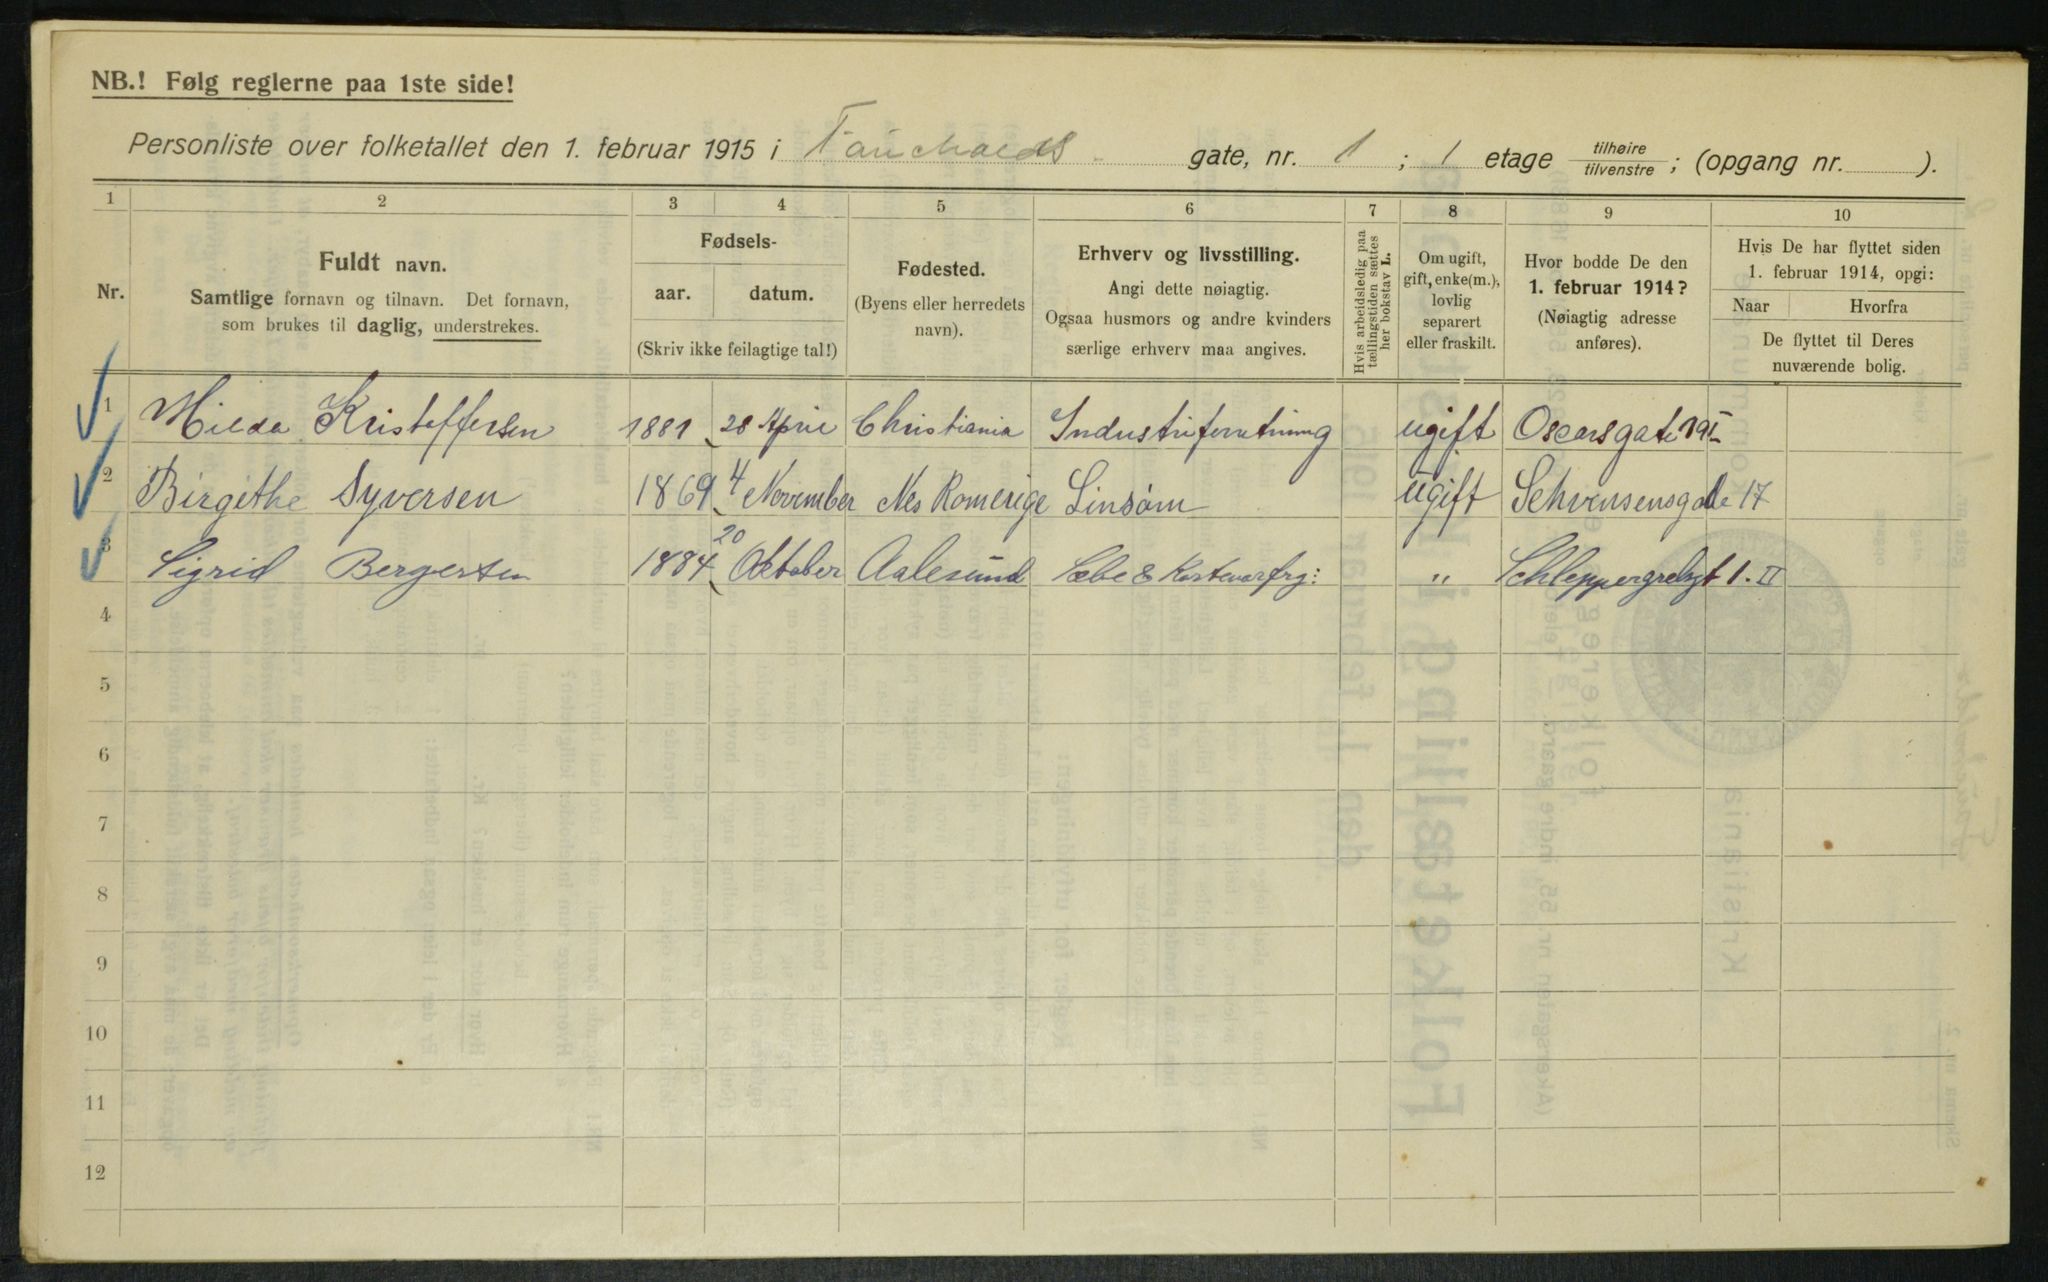 NB.! Følg reglerne paa 1ste side!
Personliste over folketallet den 1. februar 1915 i Fauchalds gate, nr. 1 ; 1 etage tilhøire tilvenstre ; (opgang nr. ).
1 2 3 4 5 6 7 8 9 10
Nr.
Fuldt navn.
Samtlige fornavn og tilnavn. Det fornavn,
som brukes til daglig, understrekes.
Fødsels-
aar. datum.
(Skriv ikke feilagtige tal!)
Fødested.
(Byens eller herredets
navn).
Erhverv og livsstilling.
Angi dette nøiagtig.
Ogsaa husmors og andre kvinders
særlige erhverv maa angives.
Hvis arbeidsledig paa
tællingstiden sættes
her bokstav L.
Om ugift,
gift, enke(m.),
lovlig
separert
eller fraskilt.
Hvor bodde De den
1. februar 1914?
(Nøiagtig adresse
anføres).
Hvis De har flyttet siden
1. februar 1914, opgi:
Naar Hvorfra
De flyttet til Deres
nuværende bolig.
1 Hilda Kristoffersen 1881 28 April Christiania Industriforretning ugift Oscarsgate
2 Birgithe Syversen 1869 4 November Nes Romerige Linsøm ugift 17
3 Sigrid Bergersen 1884 20 Oktober Aalesund Sæbe & " Schleppegrelsgt 1. II
4
5
6
7
8
9
10
11
12